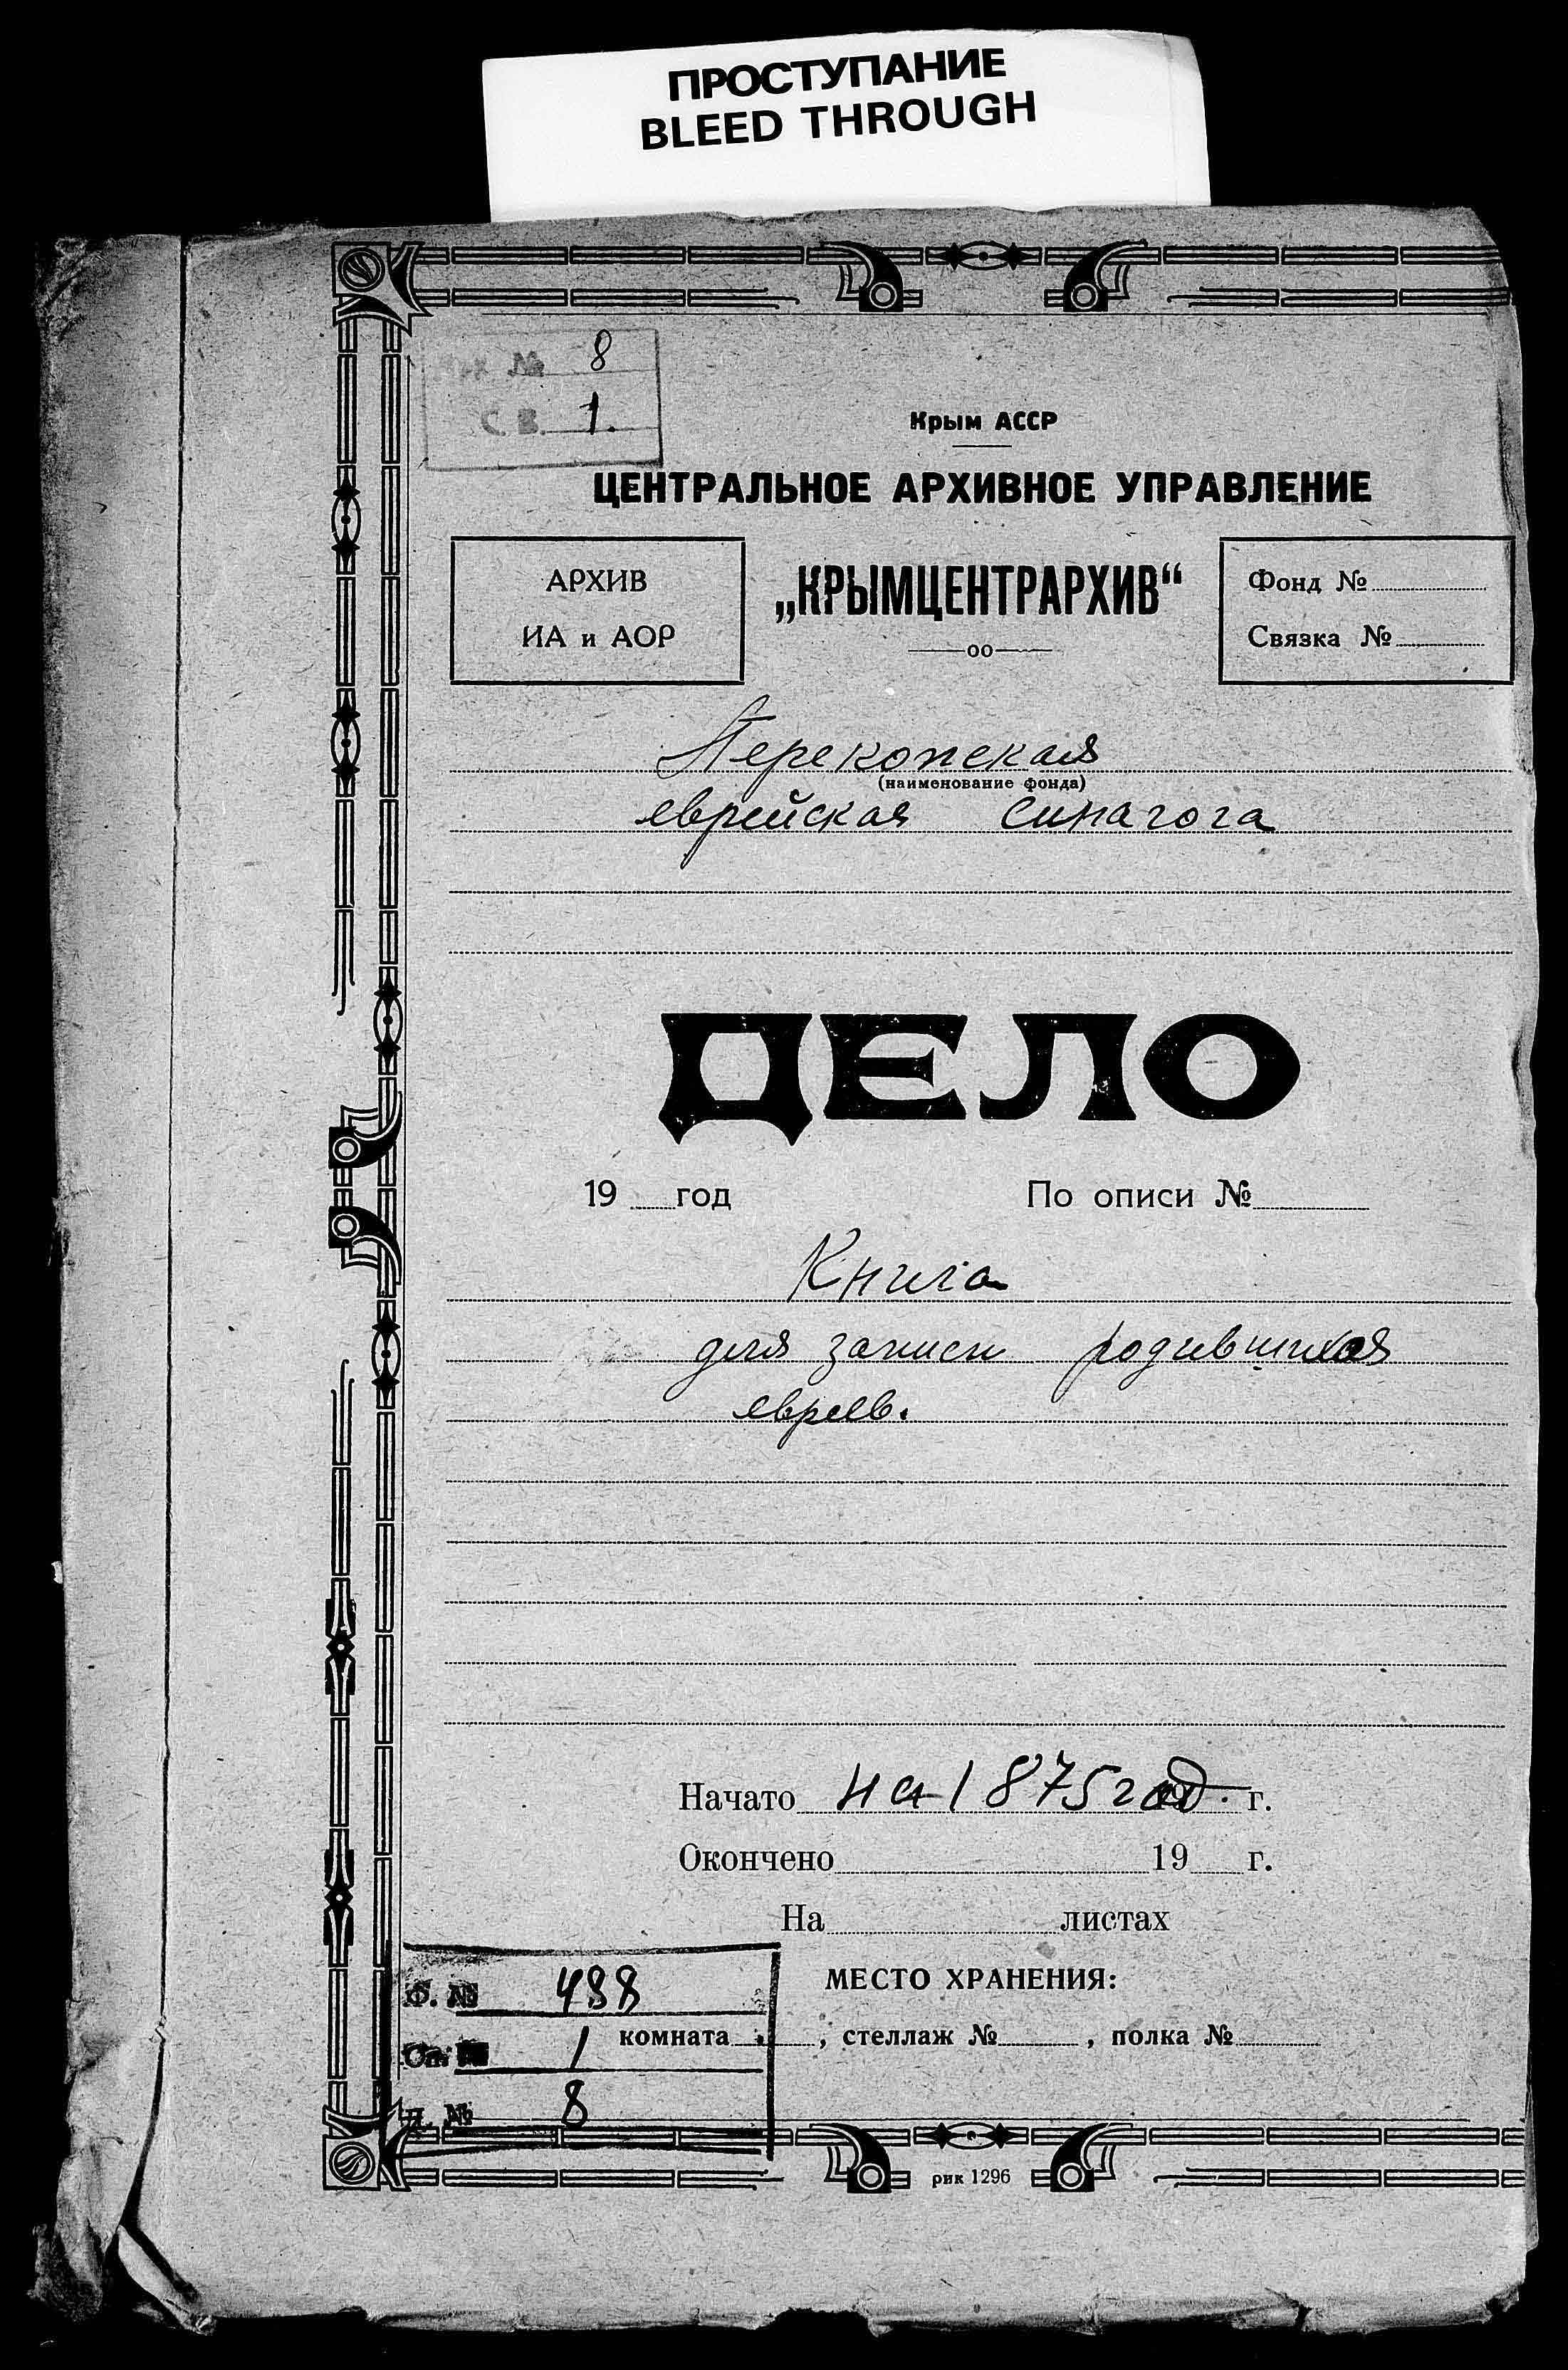 ПРОСТУПАНИЕ
BLEED THROUGH
Арх № 8
С В. 1.
Крым АССР
ЦЕНТРАЛЬНОЕ АРХИВНОЕ УПРАВЛЕНИЕ
АРХИВ
ИА и АОР
„КРЫМЦЕНТРАРХИВ“
Фонд №
Связка №
Перекопская
(наименование фонда)
еврейская синагога
ДЕЛО
19 год
По описи №
Книга
для записи родившихся
евреев.
Начато на 1875 год. г.
Окончено 19 г.
На листах
МЕСТО ХРАНЕНИЯ:
комната , стеллаж № , полка №
Ф. № 498
Оп. № 1
Д. № 8
рик 1296